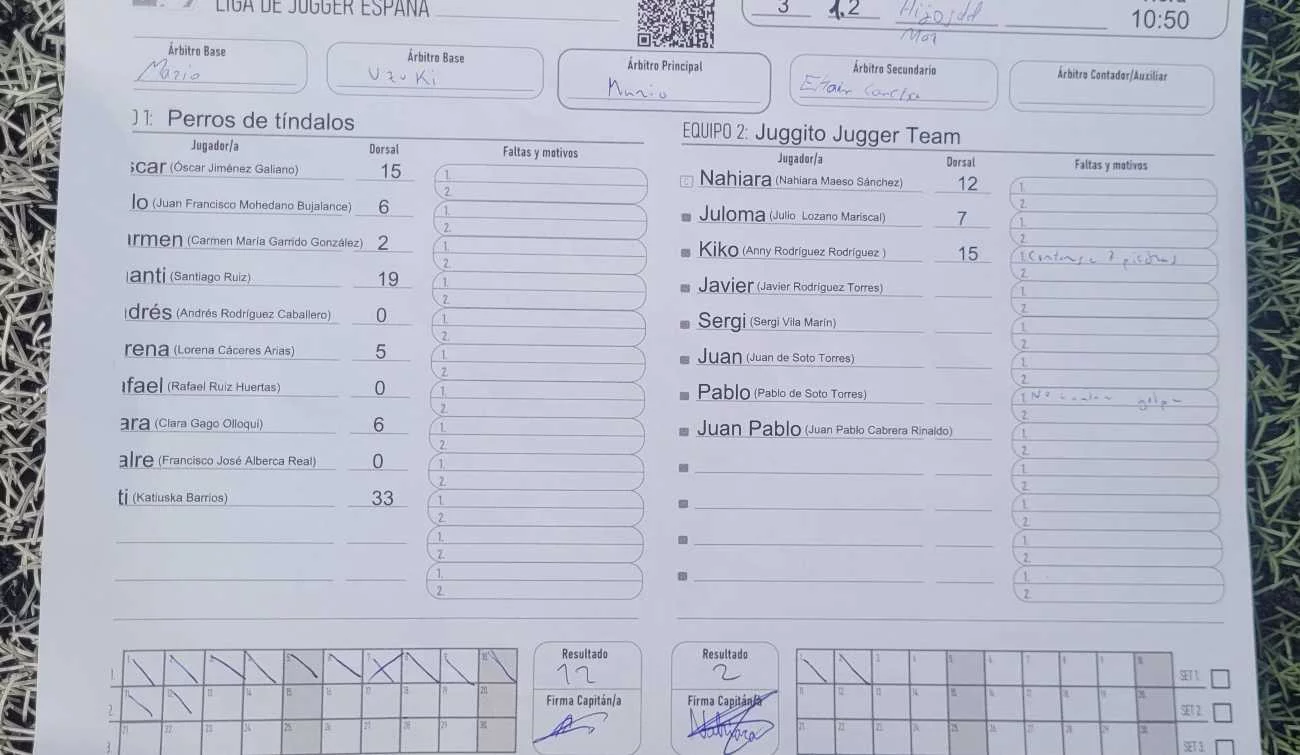 LIGA DE JUGGER ESPAÑA
3 1.2 Hijos dd Mar 10:50
Árbitro Base Árbitro Base Árbitro Principal Árbitro Secundario Árbitro Contador/Auxiliar
Mario Uzuki Efraín
1: Perros de tíndalos
Jugador/a Dorsal Faltas y motivos
scar (Óscar Jiménez Galiano) 15 1. 2.
lo (Juan Francisco Mohedano Bujalance) 6 1. 2.
rmen (Carmen María Garrido González) 2 1. 2.
anti (Santiago Ruiz) 19 1. 2.
drés (Andrés Rodríguez Caballero) 0 1. 2.
rena (Lorena Cáceres Arias) 5 1. 2.
fael (Rafael Ruiz Huertas) 0 1. 2.
ara (Clara Gago Olloqui) 6 1. 2.
alre (Francisco José Alberca Real) 0 1. 2.
ti (Katiuska Barrios) 33 1. 2.
1. 2.
1. 2.
EQUIPO 2: Juggito Jugger Team
Jugador/a Dorsal Faltas y motivos
Nahiara (Nahiara Maeso Sánchez) 12 1. 2.
Juloma (Julio Lozano Mariscal) 7 1. 2.
Kiko (Anny Rodríguez Rodríguez ) 15 1. 2.
Javier (Javier Rodríguez Torres) 1. 2.
Sergi (Sergi Vila Marín) 1. 2.
Juan (Juan de Soto Torres) 1. 2.
Pablo (Pablo de Soto Torres) 1. No 2.
Juan Pablo (Juan Pablo Cabrera Rinaldo) 1. 2.
1. 2.
1. 2.
1. 2.
1. 2.
Resultado
12
Firma Capitán/a
Resultado
2
Firma Capitán/a
Nahiara
SET 1:
SET 2:
SET 3: